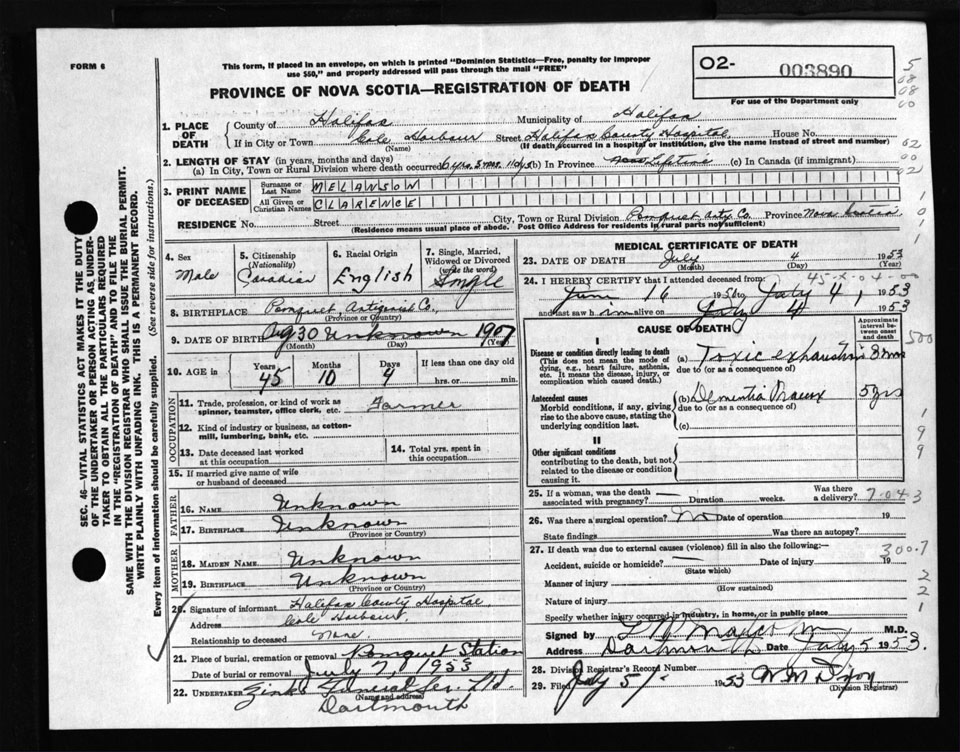 FORM 6
This form, if placed in an envelope, on which is printed "Dominion Statistics—Free, penalty for improper
use $50," and properly addressed will pass through the mail "FREE"
PROVINCE OF NOVA SCOTIA—REGISTRATION OF DEATH
O2- 003890
For use of the Department only
5
08
08
00
1. PLACE OF DEATH County of Halifax Municipality of Halifax
If in City or Town Cole Harbour Street Halifax County Hospital, House No.
(Name) (If death occurred in a hospital or institution, give the name instead of street and number)
02
00
02
2. LENGTH OF STAY (in years, months and days)
(a) In City, Town or Rural Division where death occurred (b) In Province Lifetime (c) In Canada (if immigrant)
3. PRINT NAME OF DECEASED Surname or Last Name MELANSON
All Given or Christian Names CLARENCE
RESIDENCE No. Street City, Town or Rural Division Pomquet Antg. Co. Province Nova Scotia
(Residence means usual place of abode. Post Office Address for residents in rural parts not sufficient)
4. Sex Male
5. Citizenship (Nationality) Canadian
6. Racial Origin English
7. Single, Married, Widowed or Divorced (write the word) Single
8. BIRTHPLACE Pomquet Antigonish Co.,
(Province or Country)
9. DATE OF BIRTH Aug 30 Unknown 1907
(Month) (Day) (Year)
10. AGE in Years 45 Months 10 Days 4 If less than one day old hrs. or min.
OCCUPATION
11. Trade, profession, or kind of work as spinner, teamster, office clerk, etc. Farmer
12. Kind of industry or business, as cotton-mill, lumbering, bank, etc.
13. Date deceased last worked at this occupation
14. Total yrs. spent in this occupation
15. If married give name of wife or husband of deceased
FATHER
16. NAME Unknown
17. BIRTHPLACE Unknown
(Province or Country)
MOTHER
18. MAIDEN NAME Unknown
19. BIRTHPLACE Unknown
(Province or Country)
20. Signature of informant Halifax County Hospital,
Address Cole Harbour,
Relationship to deceased None.
21. Place of burial, cremation or removal Pomquet Station
Date of burial or removal July 7, 1953
22. UNDERTAKER Zinks Funeral Ser. Ltd.
(Name and address)
Dartmouth
MEDICAL CERTIFICATE OF DEATH
23. DATE OF DEATH July 4 1953
(Month) (Day) (Year)
24. I HEREBY CERTIFY that I attended deceased from
June 16 to July 4, 1953
and last saw him alive on July 4 1953
CAUSE OF DEATH
Approximate interval between onset and death
I
Disease or condition directly leading to death (a) Toxic exhaustion
(This does not mean the mode of dying, e.g., heart failure, asthenia, etc. It means the disease, injury, or complication which caused death.)
due to (or as a consequence of)
Antecedent causes (b) Dementia Praecox 5 yrs
Morbid conditions, if any, giving rise to the above cause, stating the underlying condition last.
due to (or as a consequence of)
(c)
II
Other significant conditions
contributing to the death, but not related to the disease or condition causing it.
25. If a woman, was the death associated with pregnancy? Duration weeks. Was there a delivery?
26. Was there a surgical operation? No Date of operation 19
State findings Was there an autopsy?
27. If death was due to external causes (violence) fill in also the following:—
300.7
Accident, suicide or homicide? Date of injury 19
(State which)
Manner of injury
(How sustained)
Nature of injury
Specify whether injury occurred in industry, in home, or in public place
Signed by M.D.
Address Dartmouth Date July 5 1953.
28. Division Registrar's Record Number
29. Filed July 5 1953
(Division Registrar)
SEC. 46—VITAL STATISTICS ACT MAKES IT THE DUTY
OF THE UNDERTAKER OR PERSON ACTING AS UNDER-
TAKER TO OBTAIN ALL THE PARTICULARS REQUIRED
IN THE "REGISTRATION OF DEATH" AND TO FILE THE
SAME WITH THE DIVISION REGISTRAR WHO SHALL ISSUE THE BURIAL PERMIT.
WRITE PLAINLY WITH UNFADING INK. THIS IS A PERMANENT RECORD.
Every item of information should be carefully supplied. (See reverse side for instructions.)